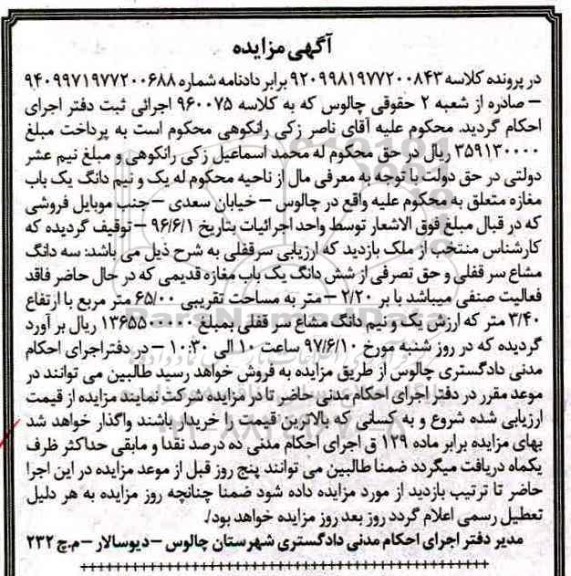 آگهی مزایده
در پرونده کلاسه ۹۲۰۹۹۸۱۹۷۷۲۰۰۸۴۳ برابر دادنامه شماره ۹۴۰۹۹۷۱۹۷۷۲۰۰۶۸۸
– صادره از شعبه ۲ حقوقی چالوس که به کلاسه ۹۶۰۰۷۵ اجرائی ثبت دفتر اجرای
احکام گردید. محکوم علیه آقای ناصر زکی رانکوهی محکوم است به پرداخت مبلغ
۳۵۹۱۳۰۰۰۰ ریال در حق محکوم له محمد اسماعیل زکی رانکوهی و مبلغ نیم عشر
دولتی در حق دولت با توجه به معرفی مال از ناحیه محکوم له یک و نیم دانگ یک باب
مغازه متعلق به محکوم علیه واقع در چالوس – خیابان سعدی – جنب موبایل فروشی
که در قبال مبلغ فوق الاشعار توسط واحد اجرائیات بتاریخ ۹۶/۶/۱ – توقیف گردیده که
کارشناس منتخب از ملک بازدید که ارزیابی سرقفلی به شرح ذیل می باشد: سه دانگ
مشاع سر قفلی و حق تصرفی از شش دانگ یک باب مغازه قدیمی که در حال حاضر فاقد
فعالیت صنفی میباشد با بر ۲/۲۰ – متر به مساحت تقریبی ۶۵/۰۰ متر مربع با ارتفاع
۳/۴۰ متر که ارزش یک و نیم دانگ مشاع سر قفلی بمبلغ ۱۳۶۵۵۰۰۰۰۰ ریال بر آورد
گردیده که در روز شنبه مورخ ۹۷/۶/۱۰ ساعت ۱۰ الی ۱۰:۳۰ – در دفتراجرای احکام
مدنی دادگستری چالوس از طریق مزایده به فروش خواهد رسید طالبین می توانند در
موعد مقرر در دفتر اجرای احکام مدنی حاضر تا در مزایده شرکت نمایند مزایده از قیمت
ارزیابی شده شروع و به کسانی که بالاترین قیمت را خریدار باشند واگذار خواهد شد
بهای مزایده برابر ماده ۱۲۹ ق اجرای احکام مدنی ده درصد نقدا و مابقی حداکثر ظرف
یکماه دریافت میگردد ضمنا طالبین می توانند پنج روز قبل از موعد مزایده در این اجرا
حاضر تا ترتیب بازدید از مورد مزایده داده شود ضمنا چنانچه روز مزایده به هر دلیل
تعطیل رسمی اعلام گردد روز بعد روز مزایده خواهد بود/.
مدیر دفتر اجرای احکام مدنی دادگستری شهرستان چالوس – دیوسالار – م.چ ۲۳۲
ParsNamadData